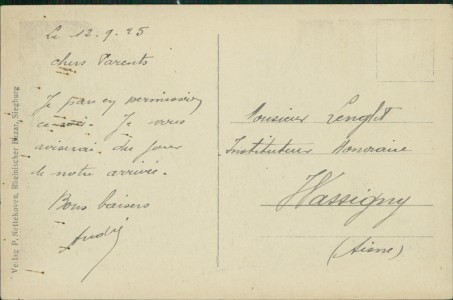 Le 12.9.25
chers Parents
Je pars en permission
ce soir. Je vous
aviserai du jour
de notre arrivée.
Bons baisers
André
Monsieur Lenglet
Instituteur Honoraire
Wassigny
(Aisne)
Verlag P. Nettekoven, Rheinischer Bazar, Siegburg